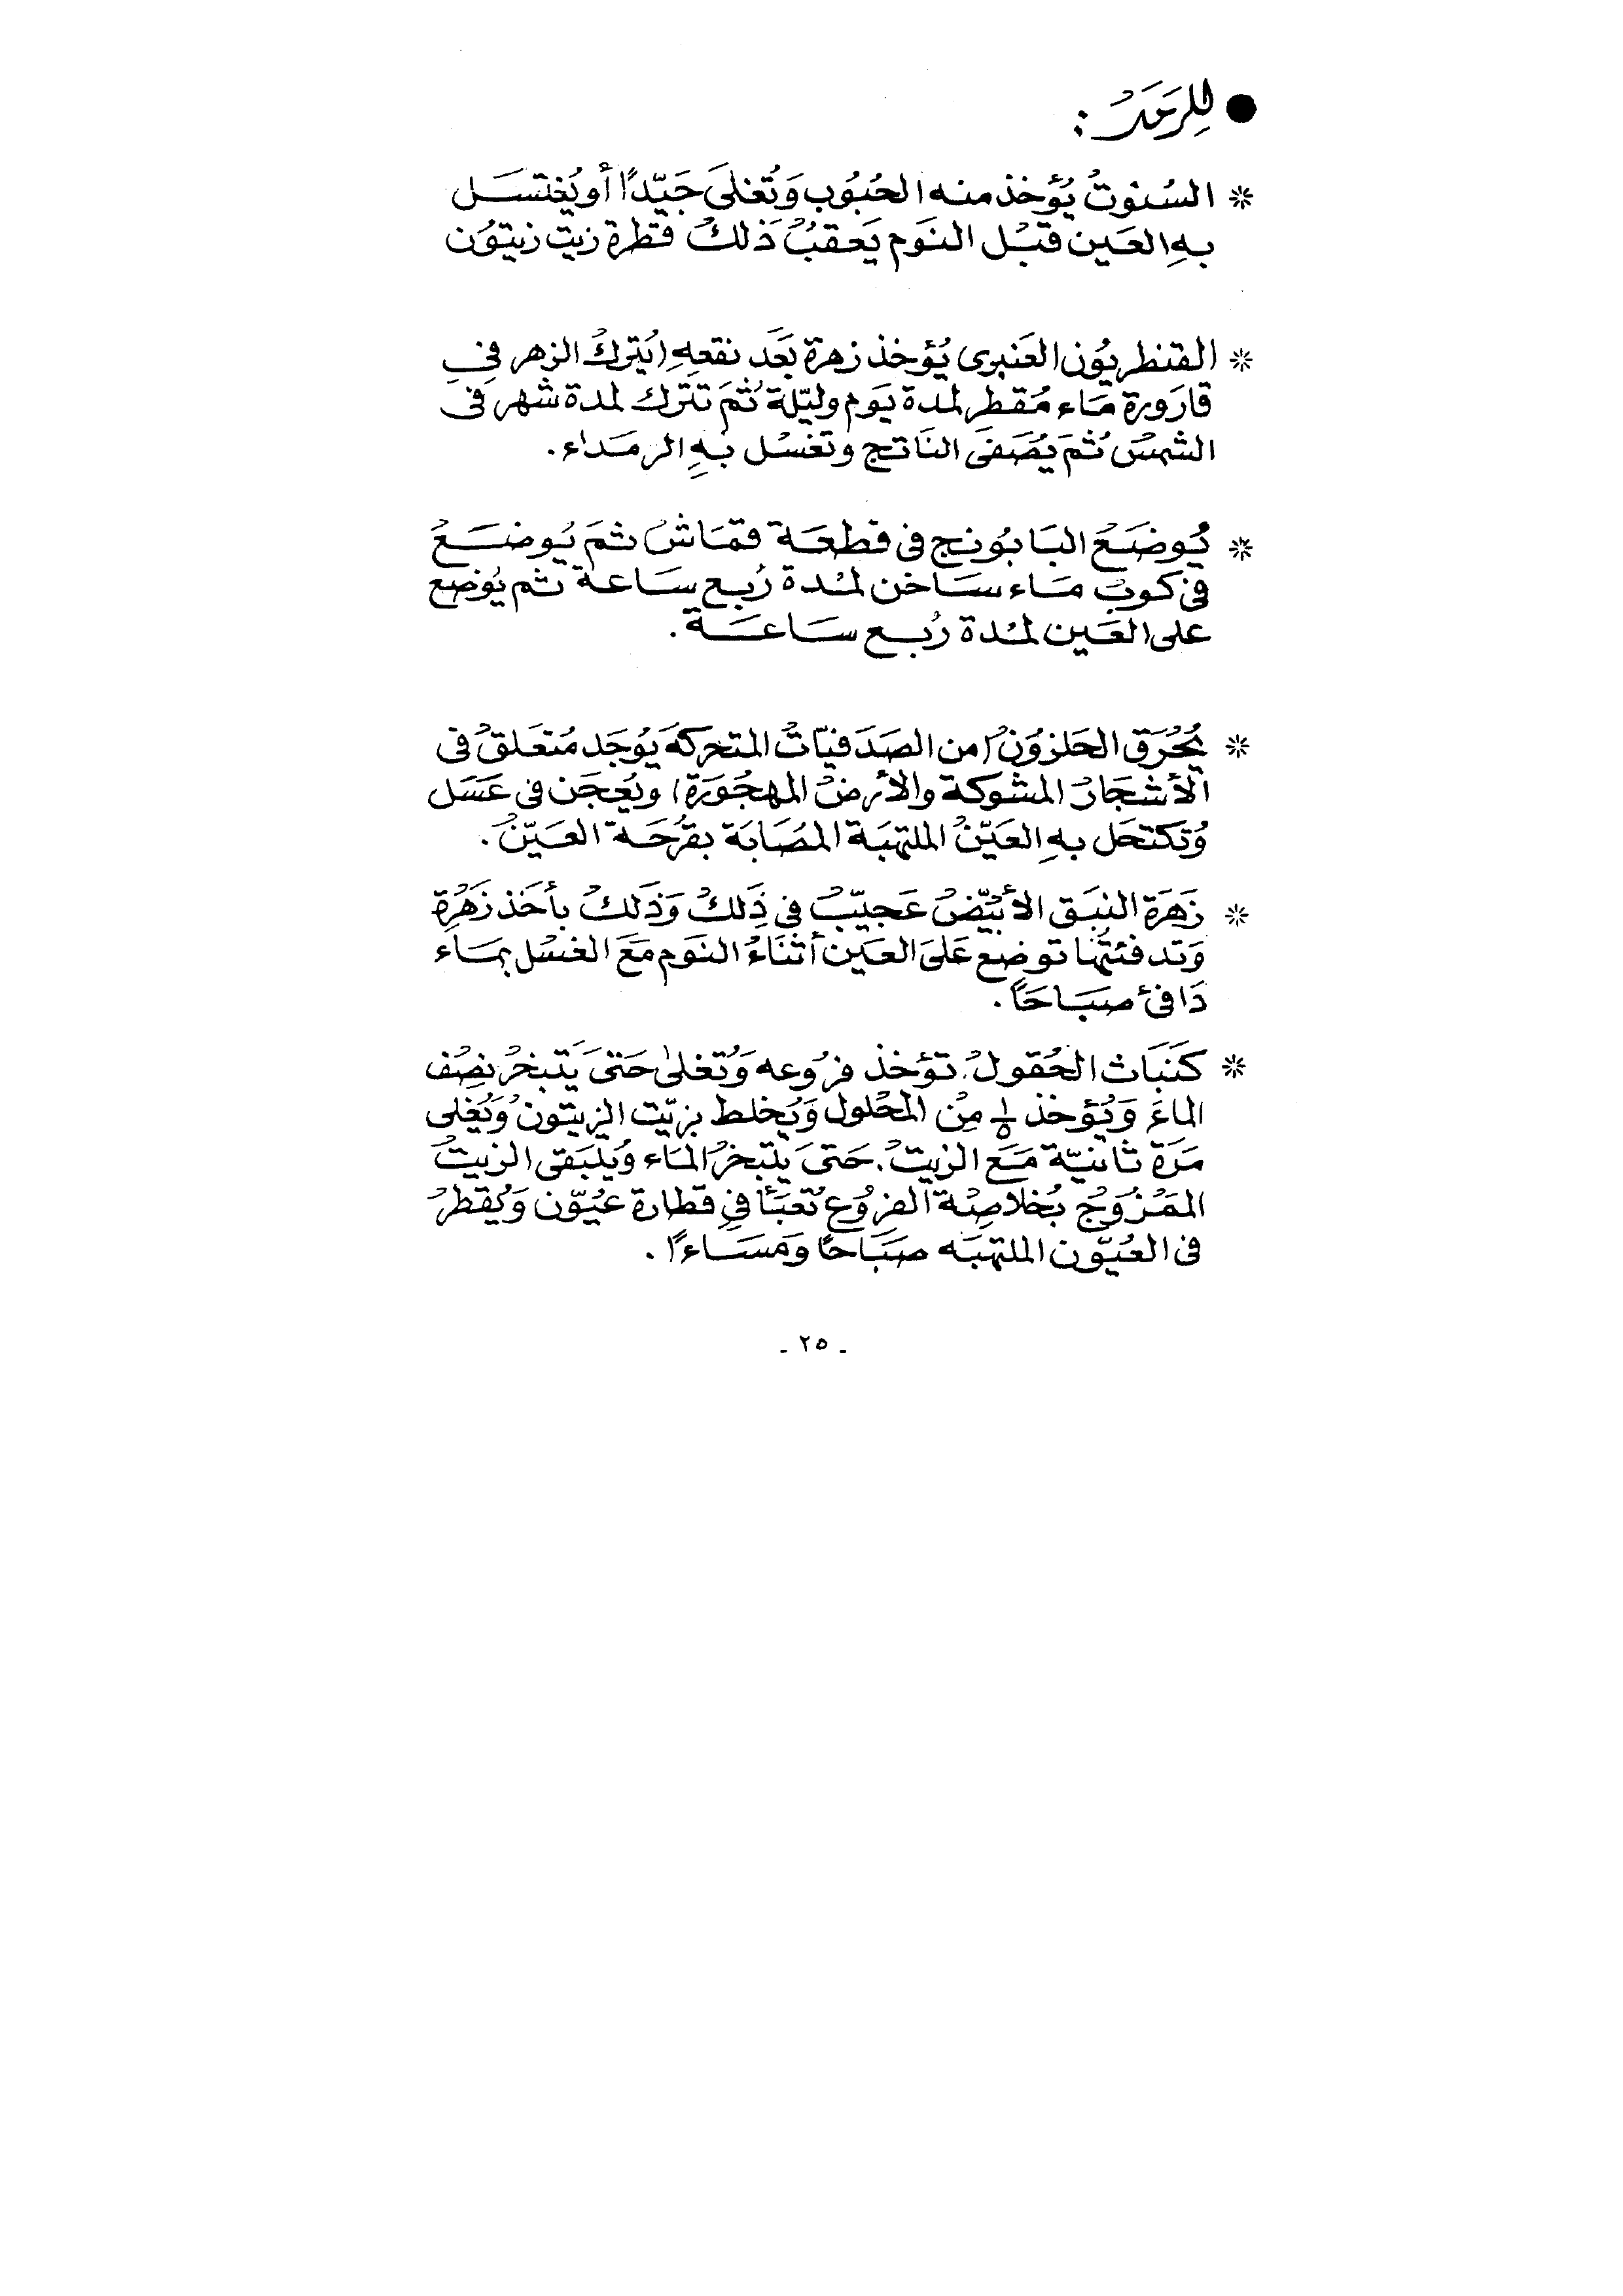 ● للرمد :
* السنوت يُؤخذ منه الحبُوب وَتُغلىَ جَيّدًا أو يُغتسَل
بهِ العَين قبْل النوَم يَعقبُ ذَلكْ قطرة زيت زيتوُن
* القنطريوُن العَنبرى يُؤخذ زهرة بَعَد نقعهِ (يُتركْ الزهر فِى
قارَورة مَاء مُقطر لمدة يَوم وليّلة ثُمَ تترك لمدة شهر فى
الشمسْ ثُمَ يُصَفىَ الناَتج وتغسْل بهِ الرمَداء.
* يُوضَعْ البَابوُنج فى قطعَة قمَاشْ ثمَ يُوضَعْ
فى كوبْ مَاء سَاخن لمْدة رُبع سَاعة ثم يُوضع
على العَين لمْدة رُبع سَاعَة.
* يُحْرَق الحَلزوُنْ (من الصَدَفيّاتْ المتحركة يَوُجَد مُتعَلقْ فى
الأشجَارْ المشوكة والأرضْ المهجُورَة) ويُعجَن فى عَسَل
وُتكتحَل بهِ العَيّنْ الملتهبَة المصَابَة بقرُحَة العَيّنْ.
* زَهَرَة النبَق الأبْيّضْ عَجيّبْ فى ذِلكْ وَذَلكْ بأخَذ زَهْرة
وَتدفئتهُا توضِع عَلىَ العَين أثنَاءْ النوَم مَعَ الغسْل بمَاء
دَافئ صبَاحَاً.
* كَنَبَاث الحُقولْ. تؤخذ فرُوعه وَتُغلىٰ حَتىَ يَتبخرْ نصِْف
الماءَ وَيُؤخذ ١/٥ مِنْ المحْلول وَيُخلط بزيّت الزيتونْ وَيُغلى
مَرَة ثانيّة مَعَ الزيتْ. حَتىَ يَتبخرْ الماَء وَيُلبَقى الزيتْ
الممَزْوُجْ بُخلاصِْة الفرُوعْ تُعبَأ فىِ قطارة عيُوّن وَيُقطرْ
فى العُيوّن الملتهبَه صبَاحًا وَمسَاءًا.
ـ ٢٥ ـ